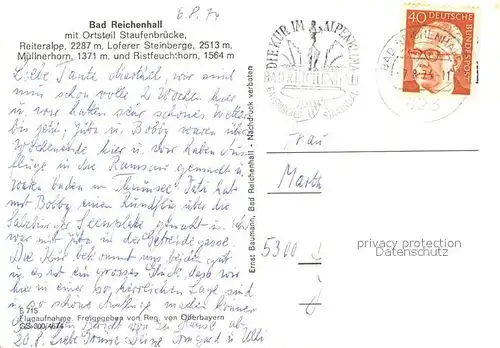 6.8.74
Bad Reichenhall
mit Ortsteil Staufenbrücke,
Reiteralpe, 2287 m, Loferer Steinberge, 2513 m,
Müllnerhorn, 1371 m. und Ristfeuchthorn, 1564 m
Liebe Tante Martha! wir sind
nun schon volle 2 Wochen hier
u. haben sehr schönes Wetter
bis jetzt; Juta u. Bobby waren über
Wochenende hier u. wir haben Aus-
flüge in die Ramsau gemacht u.
waren baden im Thumsee. Vati hat
mit Bobby einen Rundflug über die
Salzburger Seenplatte gemacht u. ich
war mit Juta in der Getreidegasse.
Die Kur bekommt uns beiden gut
u. es ist ein grosses Glück, dass wir
hie in einer so herrlichen Lage sind
u. so schöne Ausflüge machen können
S 715
Flugaufnahme. Freigegeben von Reg. von Oberbayern
GS 300/4674
zu Hause ab
20.8. Liebe Grüsse Irmgard u. Willi
Ernst Baumann, Bad Reichenhall - Nachdruck verboten
DIE KUR IM ALPENKLIMA
BAD REICHENHALL
BAD REICHENHALL
-7.8.74-11
823
40
DEUTSCHE
BUNDESPOST
Frau
Martha
5300
privacy protection
Datenschutz